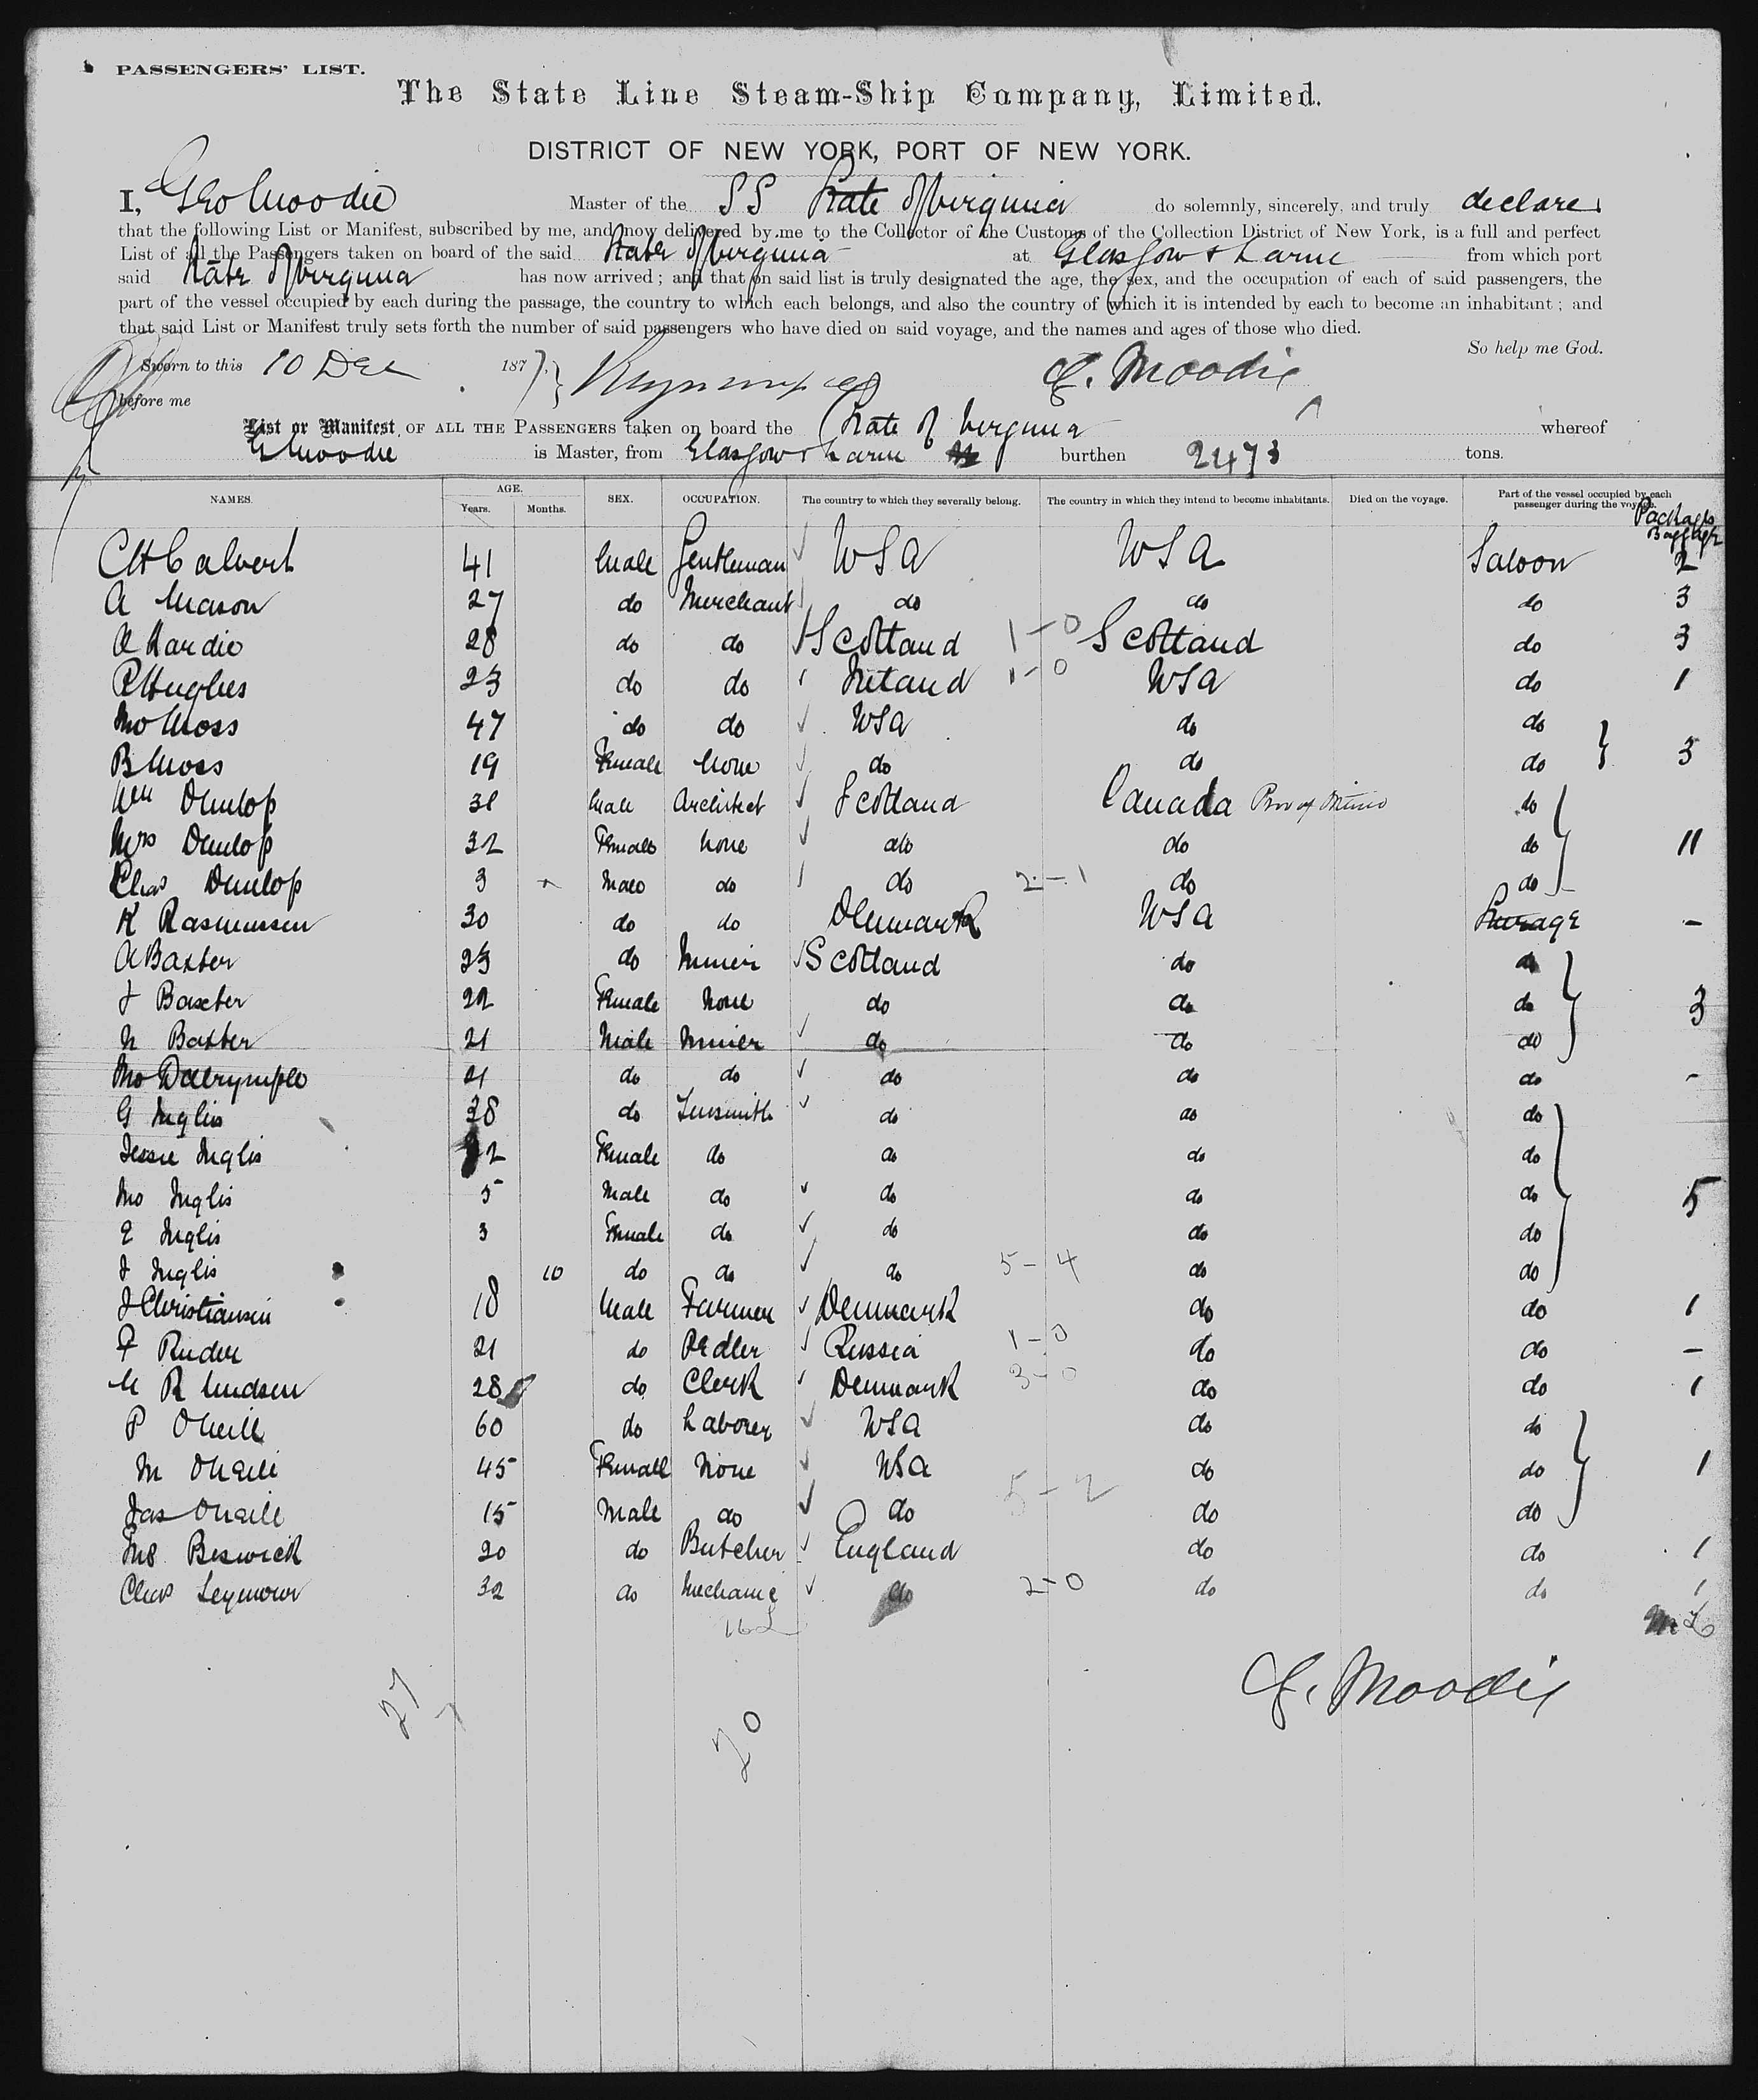 PASSENGERS' LIST.
The State Line Steam-Ship Company, Limited.
DISTRICT OF NEW YORK, PORT OF NEW YORK.
I, Geo Moodie Master of the SS State of Virginia do solemnly, sincerely, and truly declare
that the following List or Manifest, subscribed by me, and now delivered by me to the Collector of the Customs of the Collection District of New York, is a full and perfect
List of all the Passengers taken on board of the said State of Virginia at Glasgow & Larne from which port
said State of Virginia has now arrived; and that on said list is truly designated the age, the sex, and the occupation of each of said passengers, the
part of the vessel occupied by each during the passage, the country to which each belongs, and also the country of which it is intended by each to become an inhabitant; and
that said List or Manifest truly sets forth the number of said passengers who have died on said voyage, and the names and ages of those who died.
So help me God.
Sworn to this 10 Dec 1877, G. Moodie
before me
List or Manifest OF ALL THE PASSENGERS taken on board the State of Virginia whereof
G Moodie is Master, from Glasgow & Larne burthen 2473 tons.
NAMES. AGE. Years. Months. SEX. OCCUPATION. The country to which they severally belong. The country in which they intend to become inhabitants. Died on the voyage. Part of the vessel occupied by each passenger during the voyage. Packages Baggage
CH Calvert 41 Male Gentleman USA USA Saloon 2
A Mason 27 do Merchant do do do 3
A Hardie 28 do do Scotland 1-0 Scotland do 3
P Hughes 23 do do Ireland 1-0 USA do 1
Jno Moss 47 do do USA do do
B Moss 19 Female None do do do 3
Wm Dunlop 31 Male Architect Scotland Canada Prov of Ontario do
Mrs Dunlop 32 Female None do do do 11
Chas Dunlop 3 Male do do 2-1 do do
K Rasmussen 30 do do Denmark USA Steerage -
A Baxter 23 do Miner Scotland do do
J Baxter 22 Female None do do do 3
N Baxter 21 Male Miner do do do
Jno Dalrymple 21 do do do do do -
G Inglis 38 do Tinsmith do do do
Jessie Inglis 32 Female do do do do
Jno Inglis 5 Male do do do do 5
E Inglis 3 Female do do do do
J Inglis 10 do do do 5-4 do do
J Christiansen 18 Male Farmer Denmark do do 1
F Ruder 21 do Pedler Russia 1-0 do do -
M R Knudsen 28 do Clerk Denmark 3-0 do do 1
P ONeill 60 do Laborer USA do do
M ONeill 45 Female None USA do do 1
Jas ONeill 15 Male do do 5-2 do do
Jno Beswick 20 do Butcher England do do 1
Chas Seymour 32 do Mechanic do 2-0 do do 1
G. Moodie
27
20